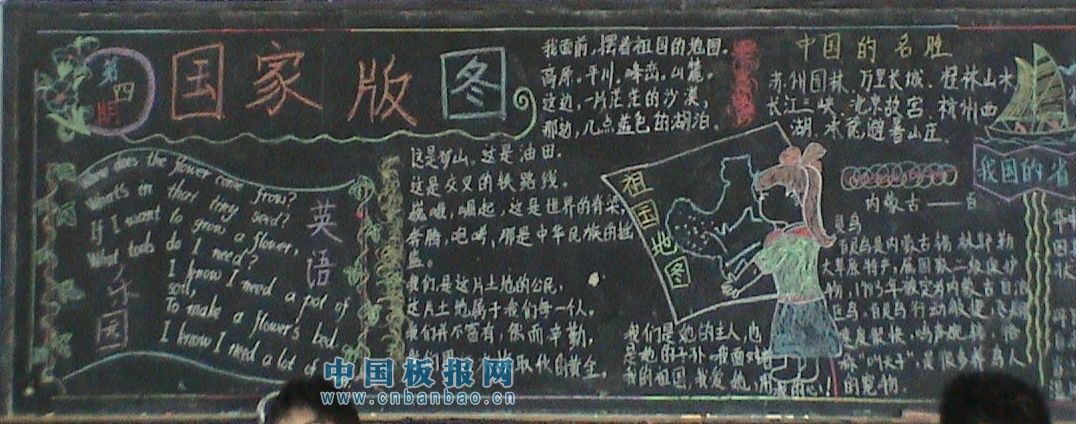 第四期
国家版图
Where does the flower come from?
What's in that tiny seed?
If I want to grow a flower,
What tools do I need?
I know I need a pot of
soil,
To make a flower's bed.
I know I need a lot of
英语
乐园
我面前,摆着祖国的地图。
高原。平川。峰峦。山麓。
这边,一片茫茫的沙漠,
那边,几点蓝色的湖泊。
这是矿山,这是油田。
这是交叉的铁路线。
巍峨,崛起,这是世界的脊梁,
奔腾,咆哮,那是中华民族的
我们是这片土地的公民,
这片土地属于我们每一个人。
我们并不富有,然而辛勤,
取代的黄金。
祖国地图
我们是她的主人,也
是她的
我的祖国,我爱她,用
我的心!
中国的名胜
苏州园林、万里长城、桂林山水
长江三峡、北京故宫、杭州西
湖、承德避暑山庄。
我国的省
内蒙古——百
灵鸟
百灵鸟是内蒙古锡林郭勒
大草原特产,属国家二级保护
动物,被定为内蒙古自治
区鸟,百灵鸟行动敏捷,飞翔
速度最快,鸣声婉转,俗
称"叫天子",是很多蒙古人
的宠物。
中国板报网
www.cnbanbao.cn